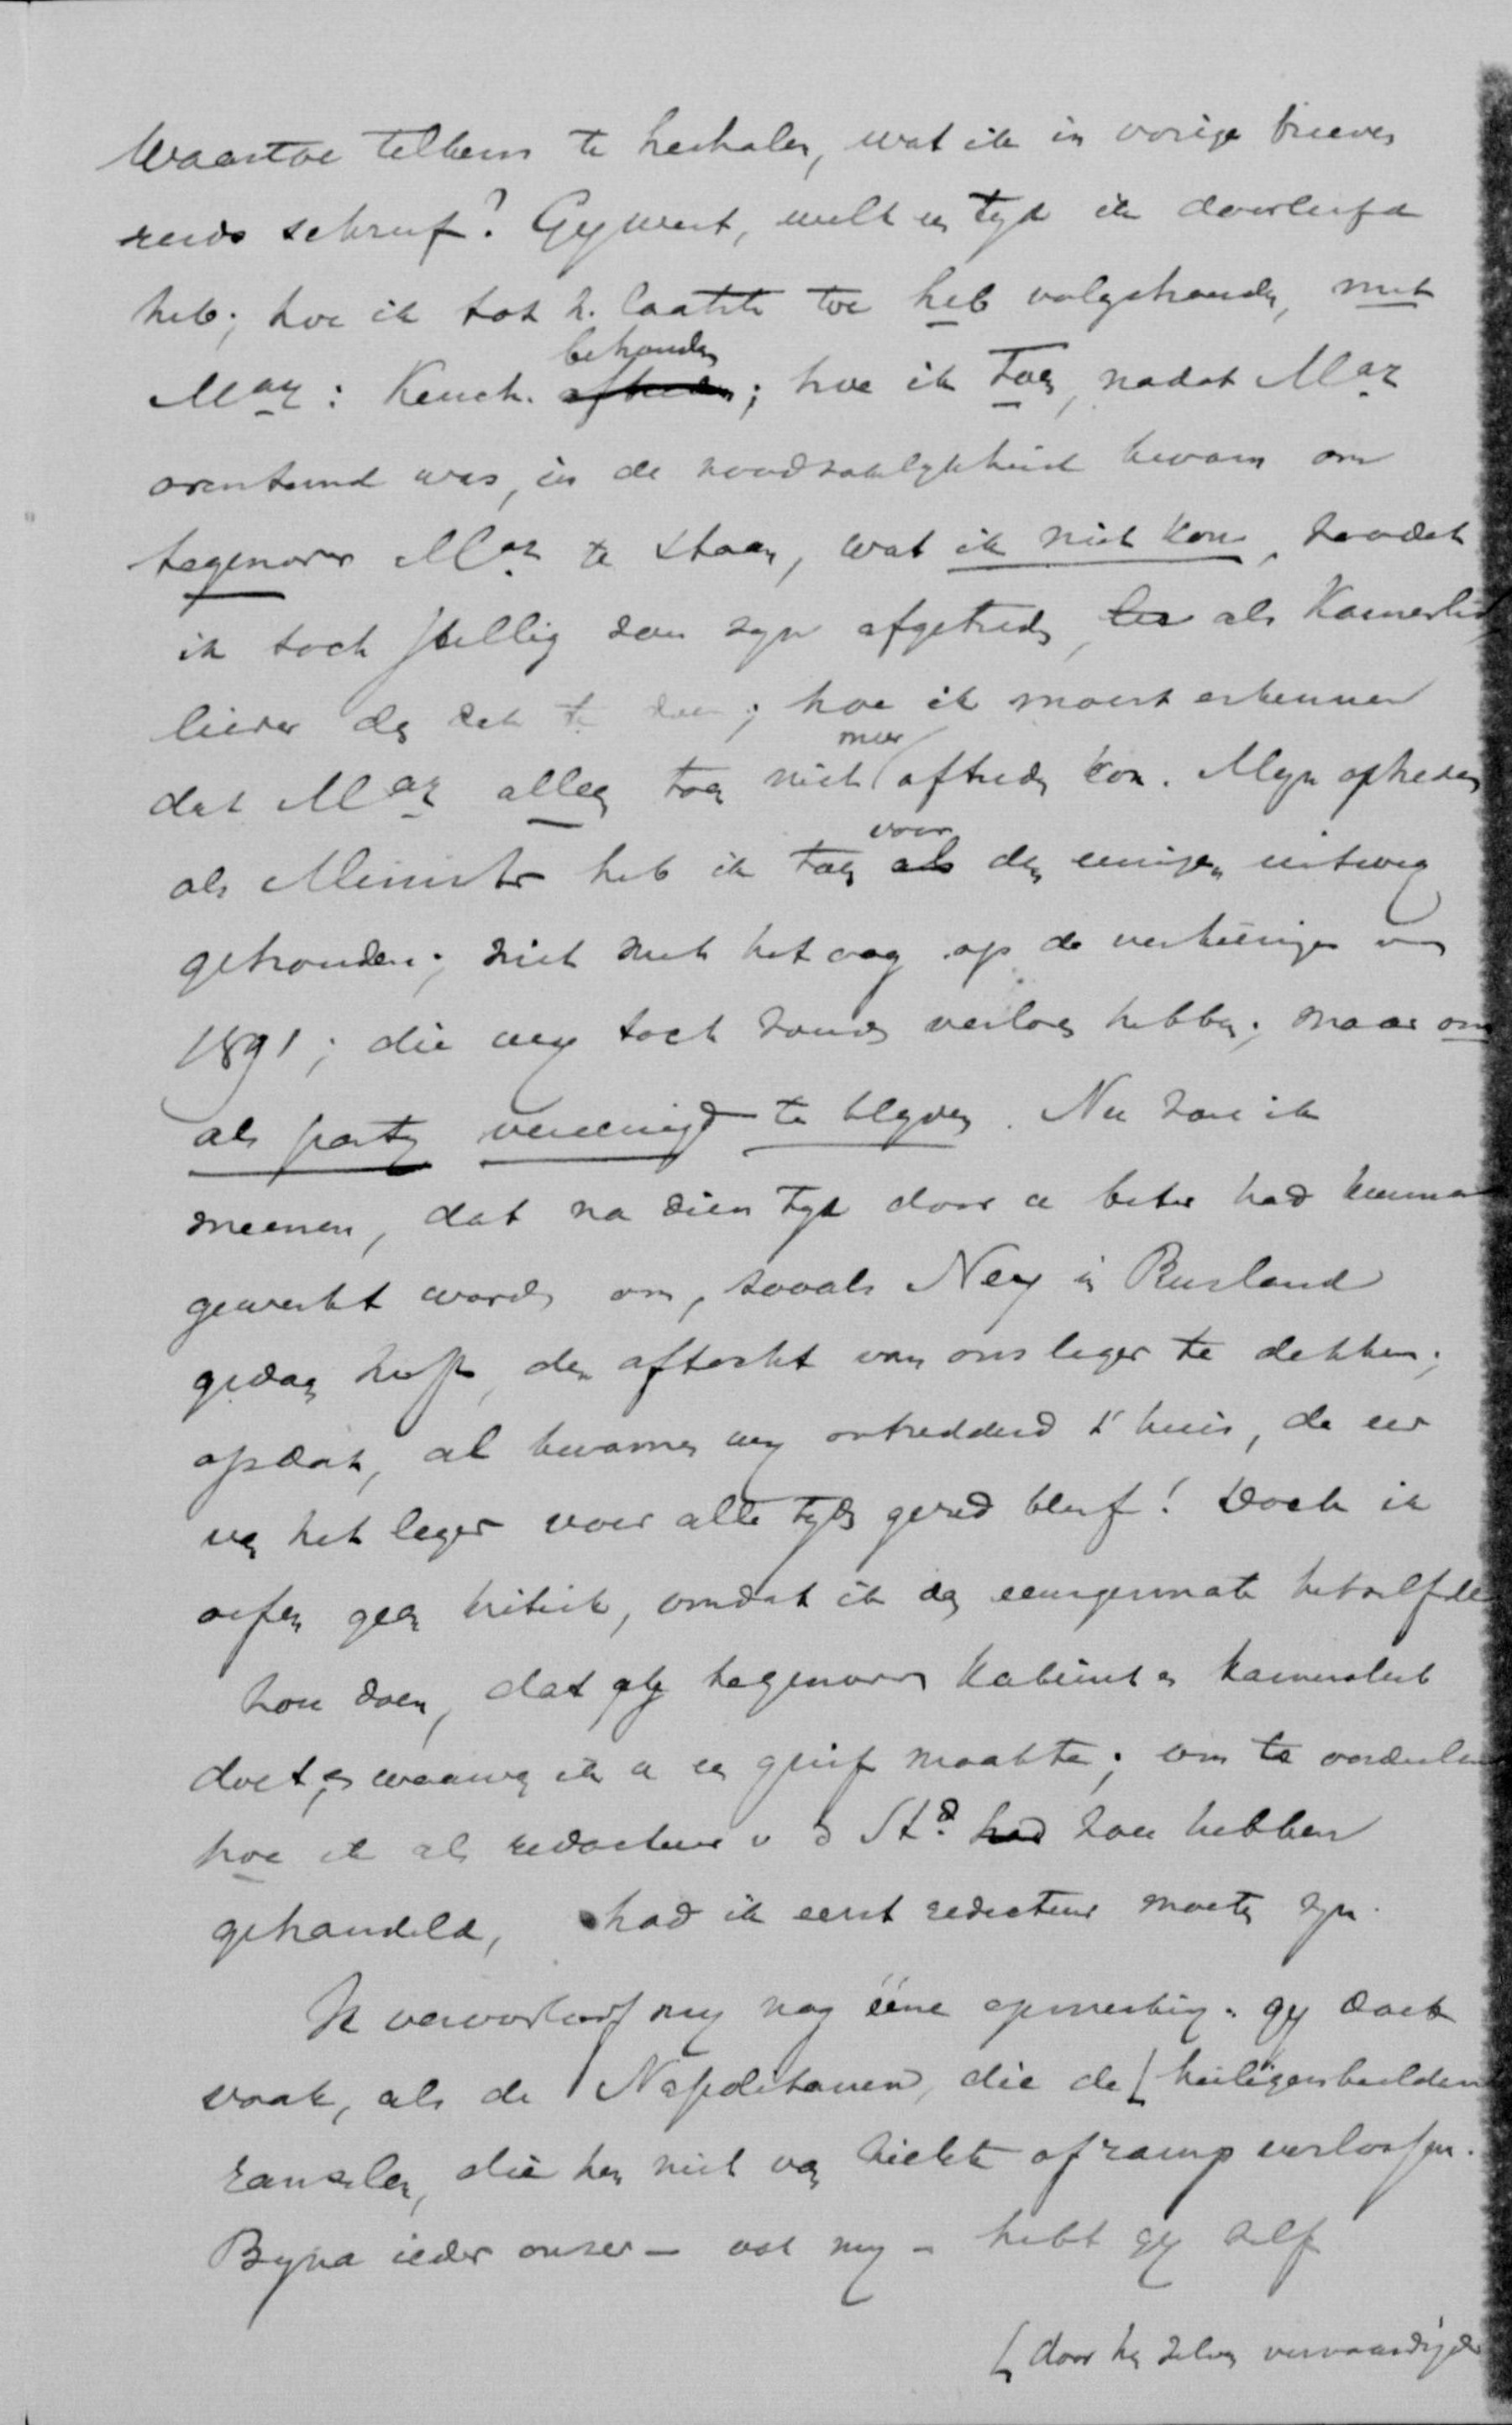 Waartoe telkens te herhalen, wat ik in vorige brieven
reeds schreef? Gij weet, welk een tijd ik doorleefd
heb; hoe ik tot h. laatste toe heb volgehouden, met
behouden
May: Keuch. aftreden; hoe ik toen, nadat May
overstemd was, in de noodzakelijkheid kwam om
tegenover May te staan, wat ik niet kon, zoodat
ik toch stellig zou zijn afgetreden, als Kamerlid
liever dan dat te doen; hoe ik moest erkennen
meer
dat May alleen toen niet aftreden kon. Mijn optreden
voor
als Minister heb ik toen als den eenigen uitweg
gehouden; niet met het oog op de verkiezingen van
1891; die wij toch zouden verloren hebben; maar om
als partij vereenigd te blijven. Nu zou ik
meenen, dat na dien tijd door u beter had kunnen
gewerkt worden om, zooals Ney in Rusland
gedaan heeft, den aftocht van ons leger te dekken;
opdat, al kwamen wij ontredderd t'huis, de eer
van het leger voor alle tijden gered bleef! Doch ik
oefen geen kritiek, omdat ik dan eenigermate hetzelfde
zou doen, dat gij tegenover Kabinet en Kamerclub
doet, en waarvan ik u een grief maakte; om te oordeelen
hoe ik als redacteur v d Std. had zou hebben
gehandeld, had ik eerst redacteur moeten zijn.
Ik veroorloof mij nog ééne opmerking: gij doet
vaak, als de Napolitanen, die de [ heiligenbeelden
ranselen, die hen niet van ziekte of ramp verlossen.
Bijna ieder onzer – ook mij – hebt gij zelf
[ door hen zelven vervaardigde